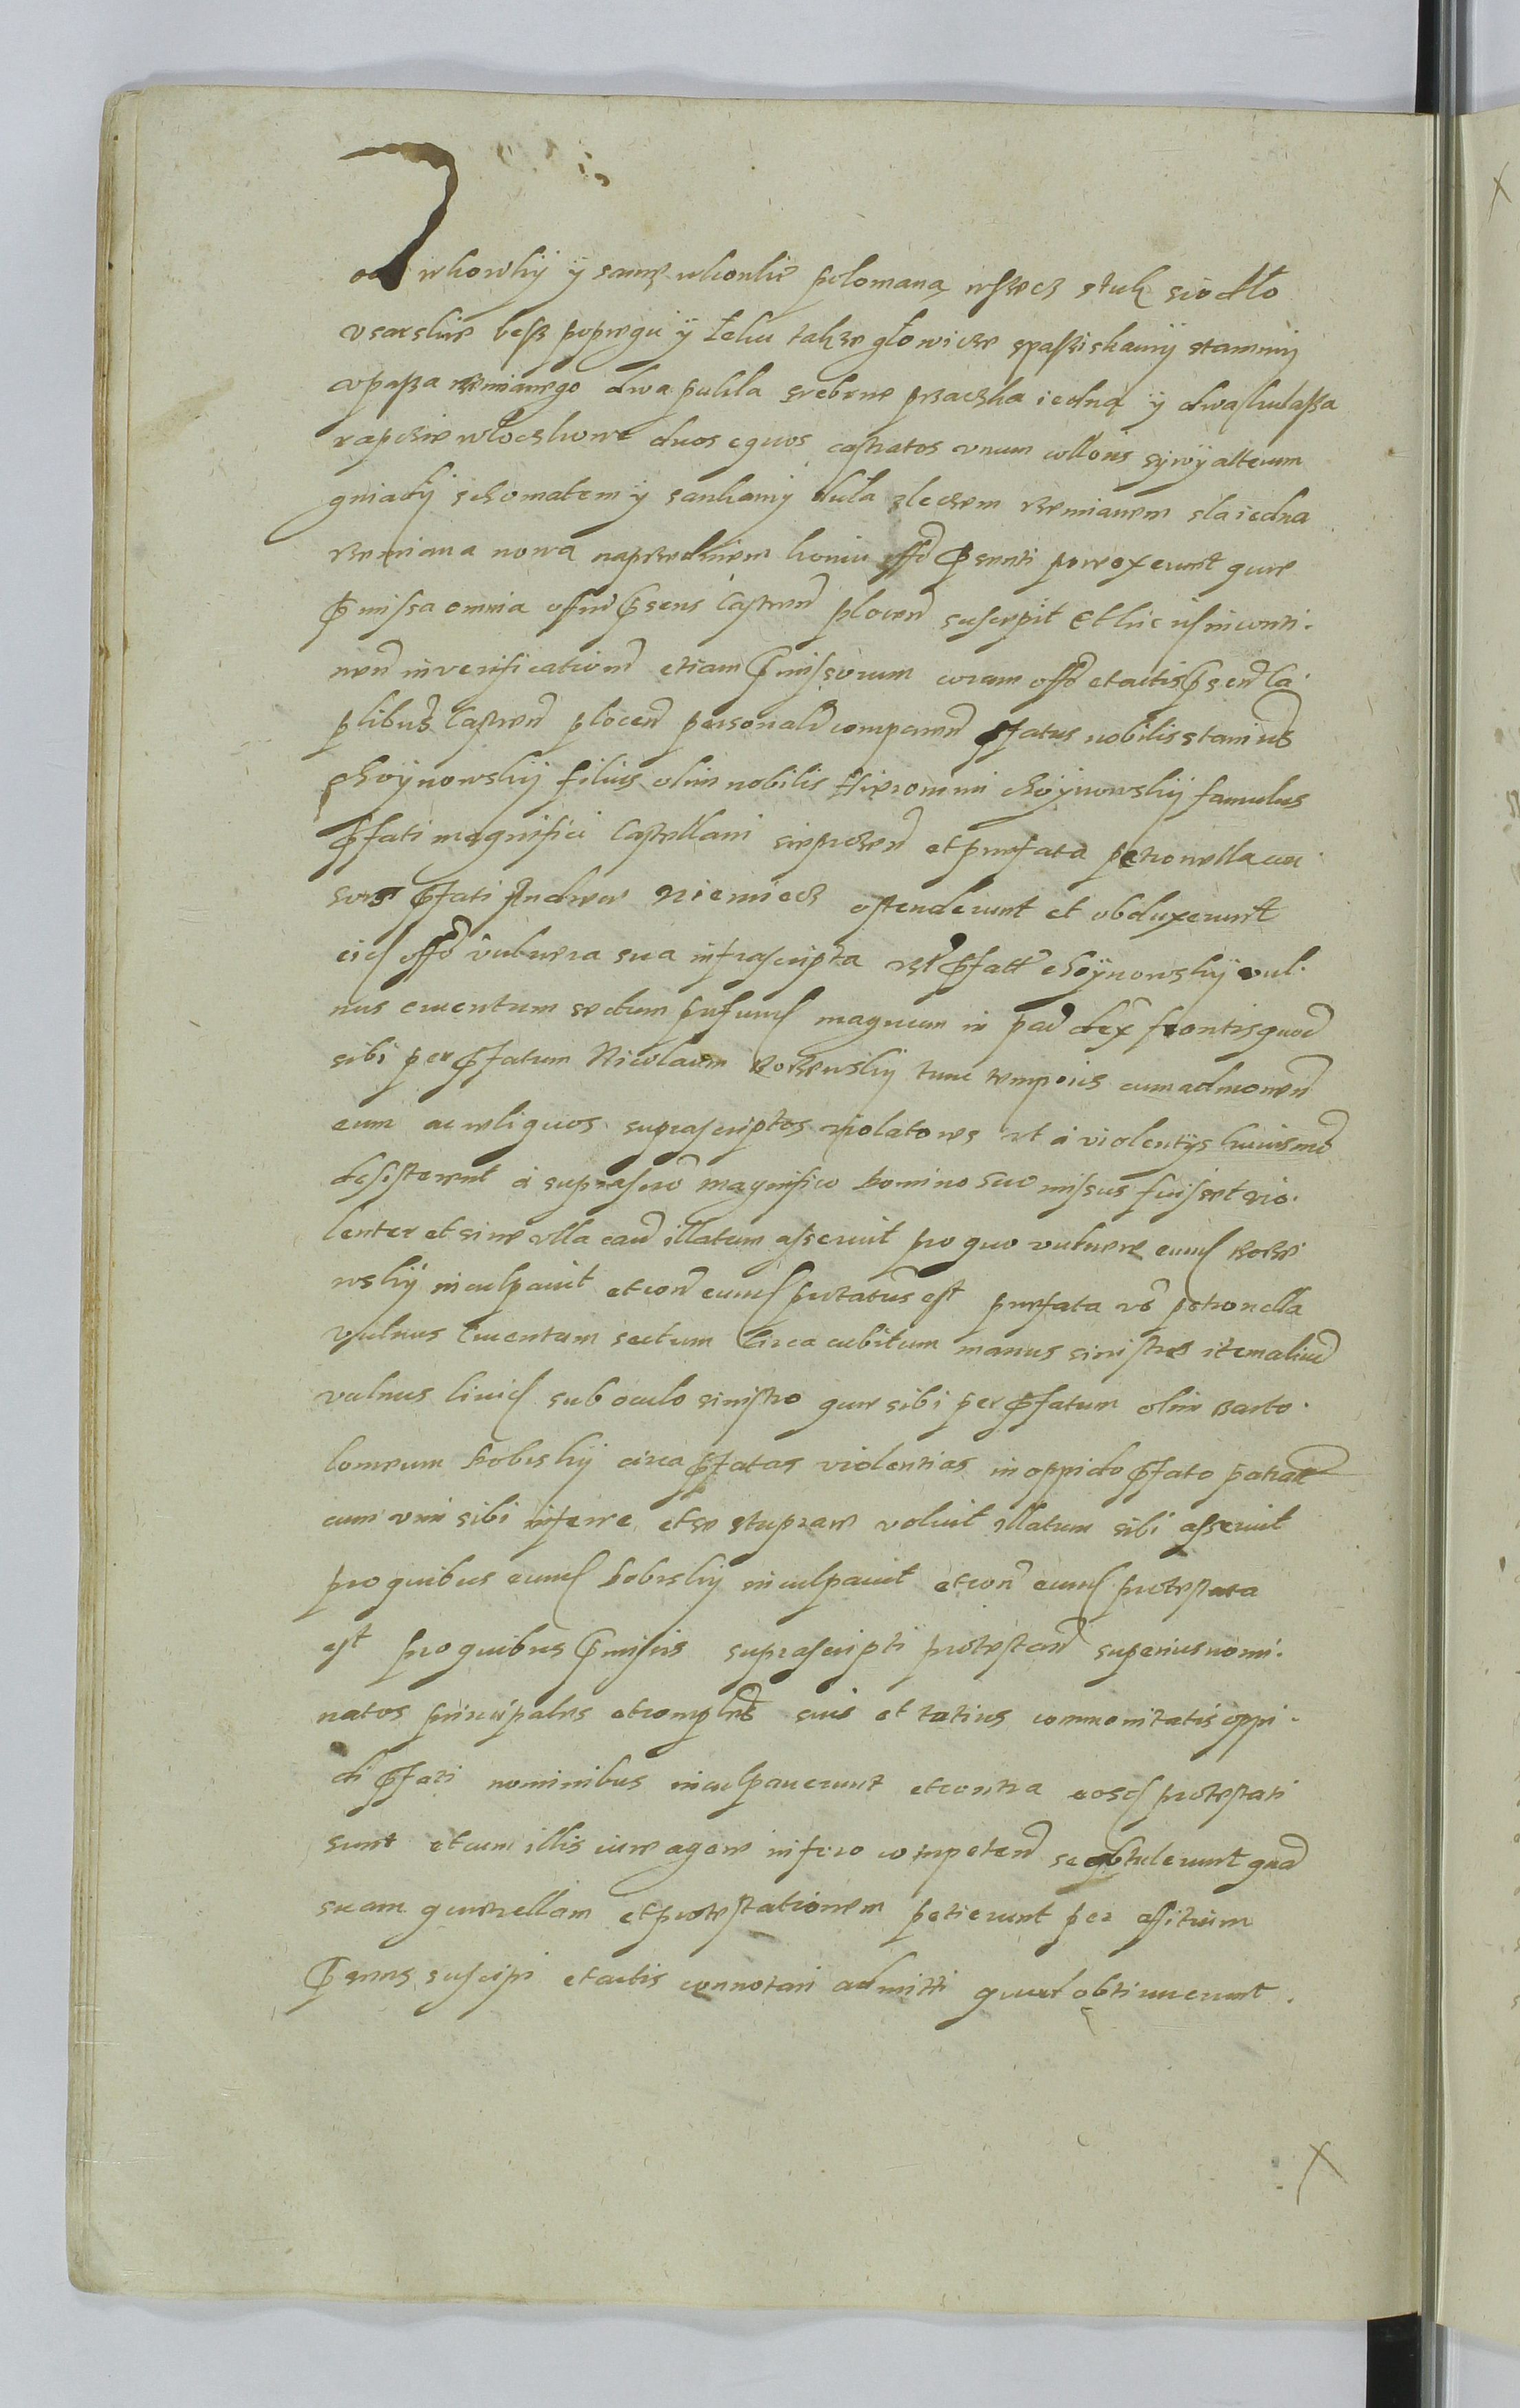 od rekowky y same rekowlie polomana wssecz stuk siodło
vsarskie besz popregu y łeku takze głowicze spassiskamy stammy
dwa pukla srebrne przaczka iedna y dwa
duos equos castratos vnum coloris sywy alterum
gniady schomatem y sankamy rzemianem sla iedna
rzemiana nowa naprzedniem koniu offo pnti porrexerunt que
pmissa omnia offm psens Castren plocen suscepit Et hic iis inconti-
nen in verificationem etiam pmissorum coram offo et actis psen ca-
plibus Castren plocen personalr comparen pfatus nobilis stanius
choynowskÿ filius olim nobilis Hieronimi choÿnowskÿ famulus
pfati magnifici Castellani sieprcen et prefata petronella uxi
pfati Andree Niemiecz ostenderunt et obduxerunt
eid offo vulnera sua infrascripta vz pfatt choÿnowskÿ vul-
nus cruentum sectum magnum in par dex frontis quod
sibi per pfatum Nicolaum tunc temporis cum admonen
eum ac reliquos suprascriptos violatores vt a violentijs huiusmd
desisterent a suprascro magnifico domino suo missus fuisset vio-
lenter et sine vlla cau illatum asseruit pro quo vulnere eund
wskÿ inculpauit et con eund ptatus est prefata vo petronella
vulnus cruentum sectum circa cubitum manus sinistre item aliud
vulnus liuid sub oculo sinistro que sibi per pfatum olim Barto-
lomeum dobrskÿ circa pfatas violentias in oppido pfato patrat
cum vim sibi inferre et se stuprare voluit illatum sibi asseruit
pro quibus eund dobrskÿ inculpauit et con eund protestata
est pro quibus pmissis suprascripti protestan superius nomi-
natos principales et complices suis et totius commonitatis oppi-
di pfati nominibus inculpauerunt et contra eosd protestati
sunt et cum illis iure agere in foro competen se obtulerunt quad
suam querellam et protestationem petierunt per offitium
psens suscipi et actis connotari admitti quod obtinuerunt.